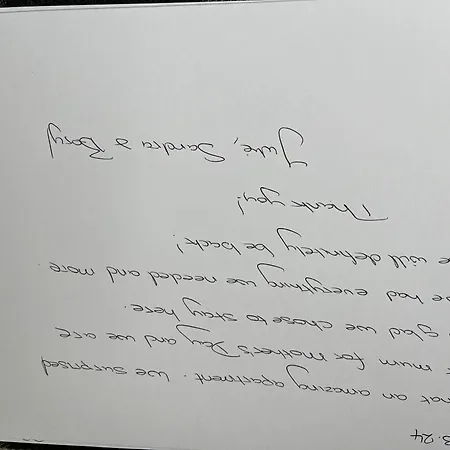 3.24
hat an amazing apartment. We surprised
r mum for mothers Day and we are
glad we chose to stay here.
e had everything we needed and more.
e will definitely be back!
Thank you!
Julie, Sandra &